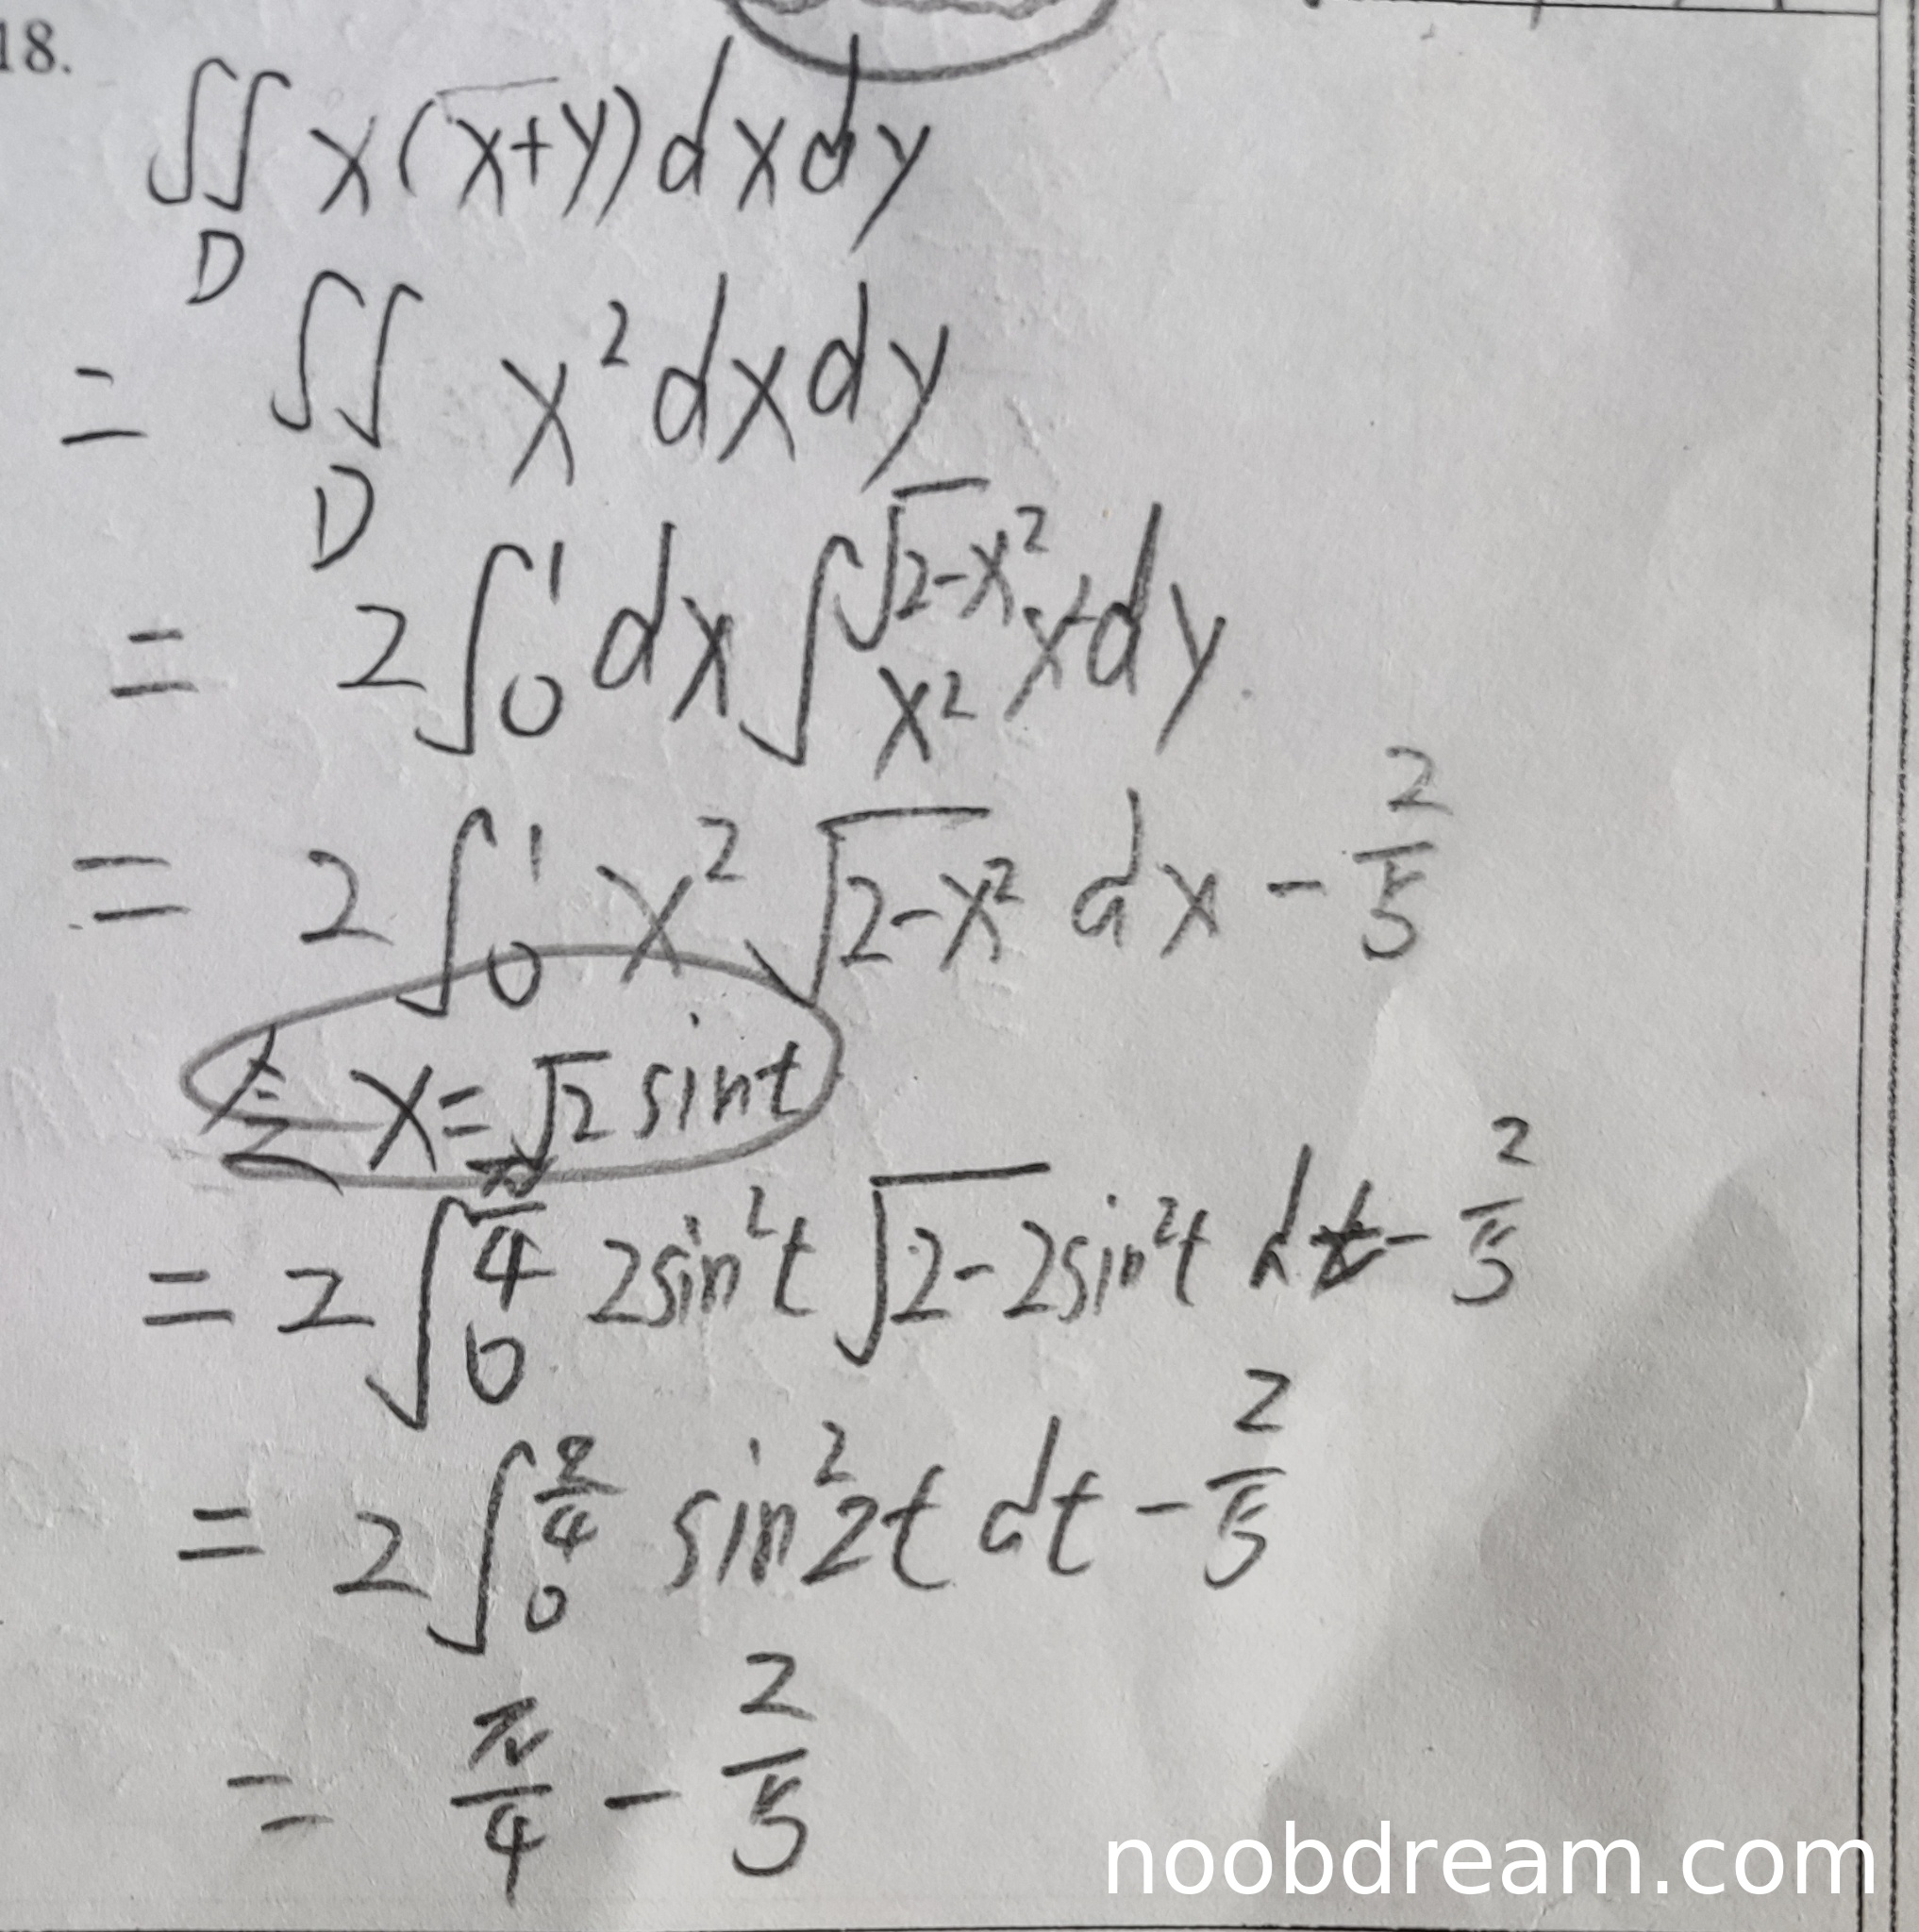 18.
∬_D x(x+y)dxdy
= ∬_D x²dxdy
= 2∫₀¹dx∫_{x²}^{√(2-x²)} x²dy
= 2∫₀¹ x²√(2-x²) dx - 2/5
令 x=√2 sint
= 2∫₀^{π/4} 2sin²t √(2-2sin²t) dt - 2/5
= 2∫₀^{π/4} sin²2t dt - 2/5
= π/4 - 2/5
noobdream.com